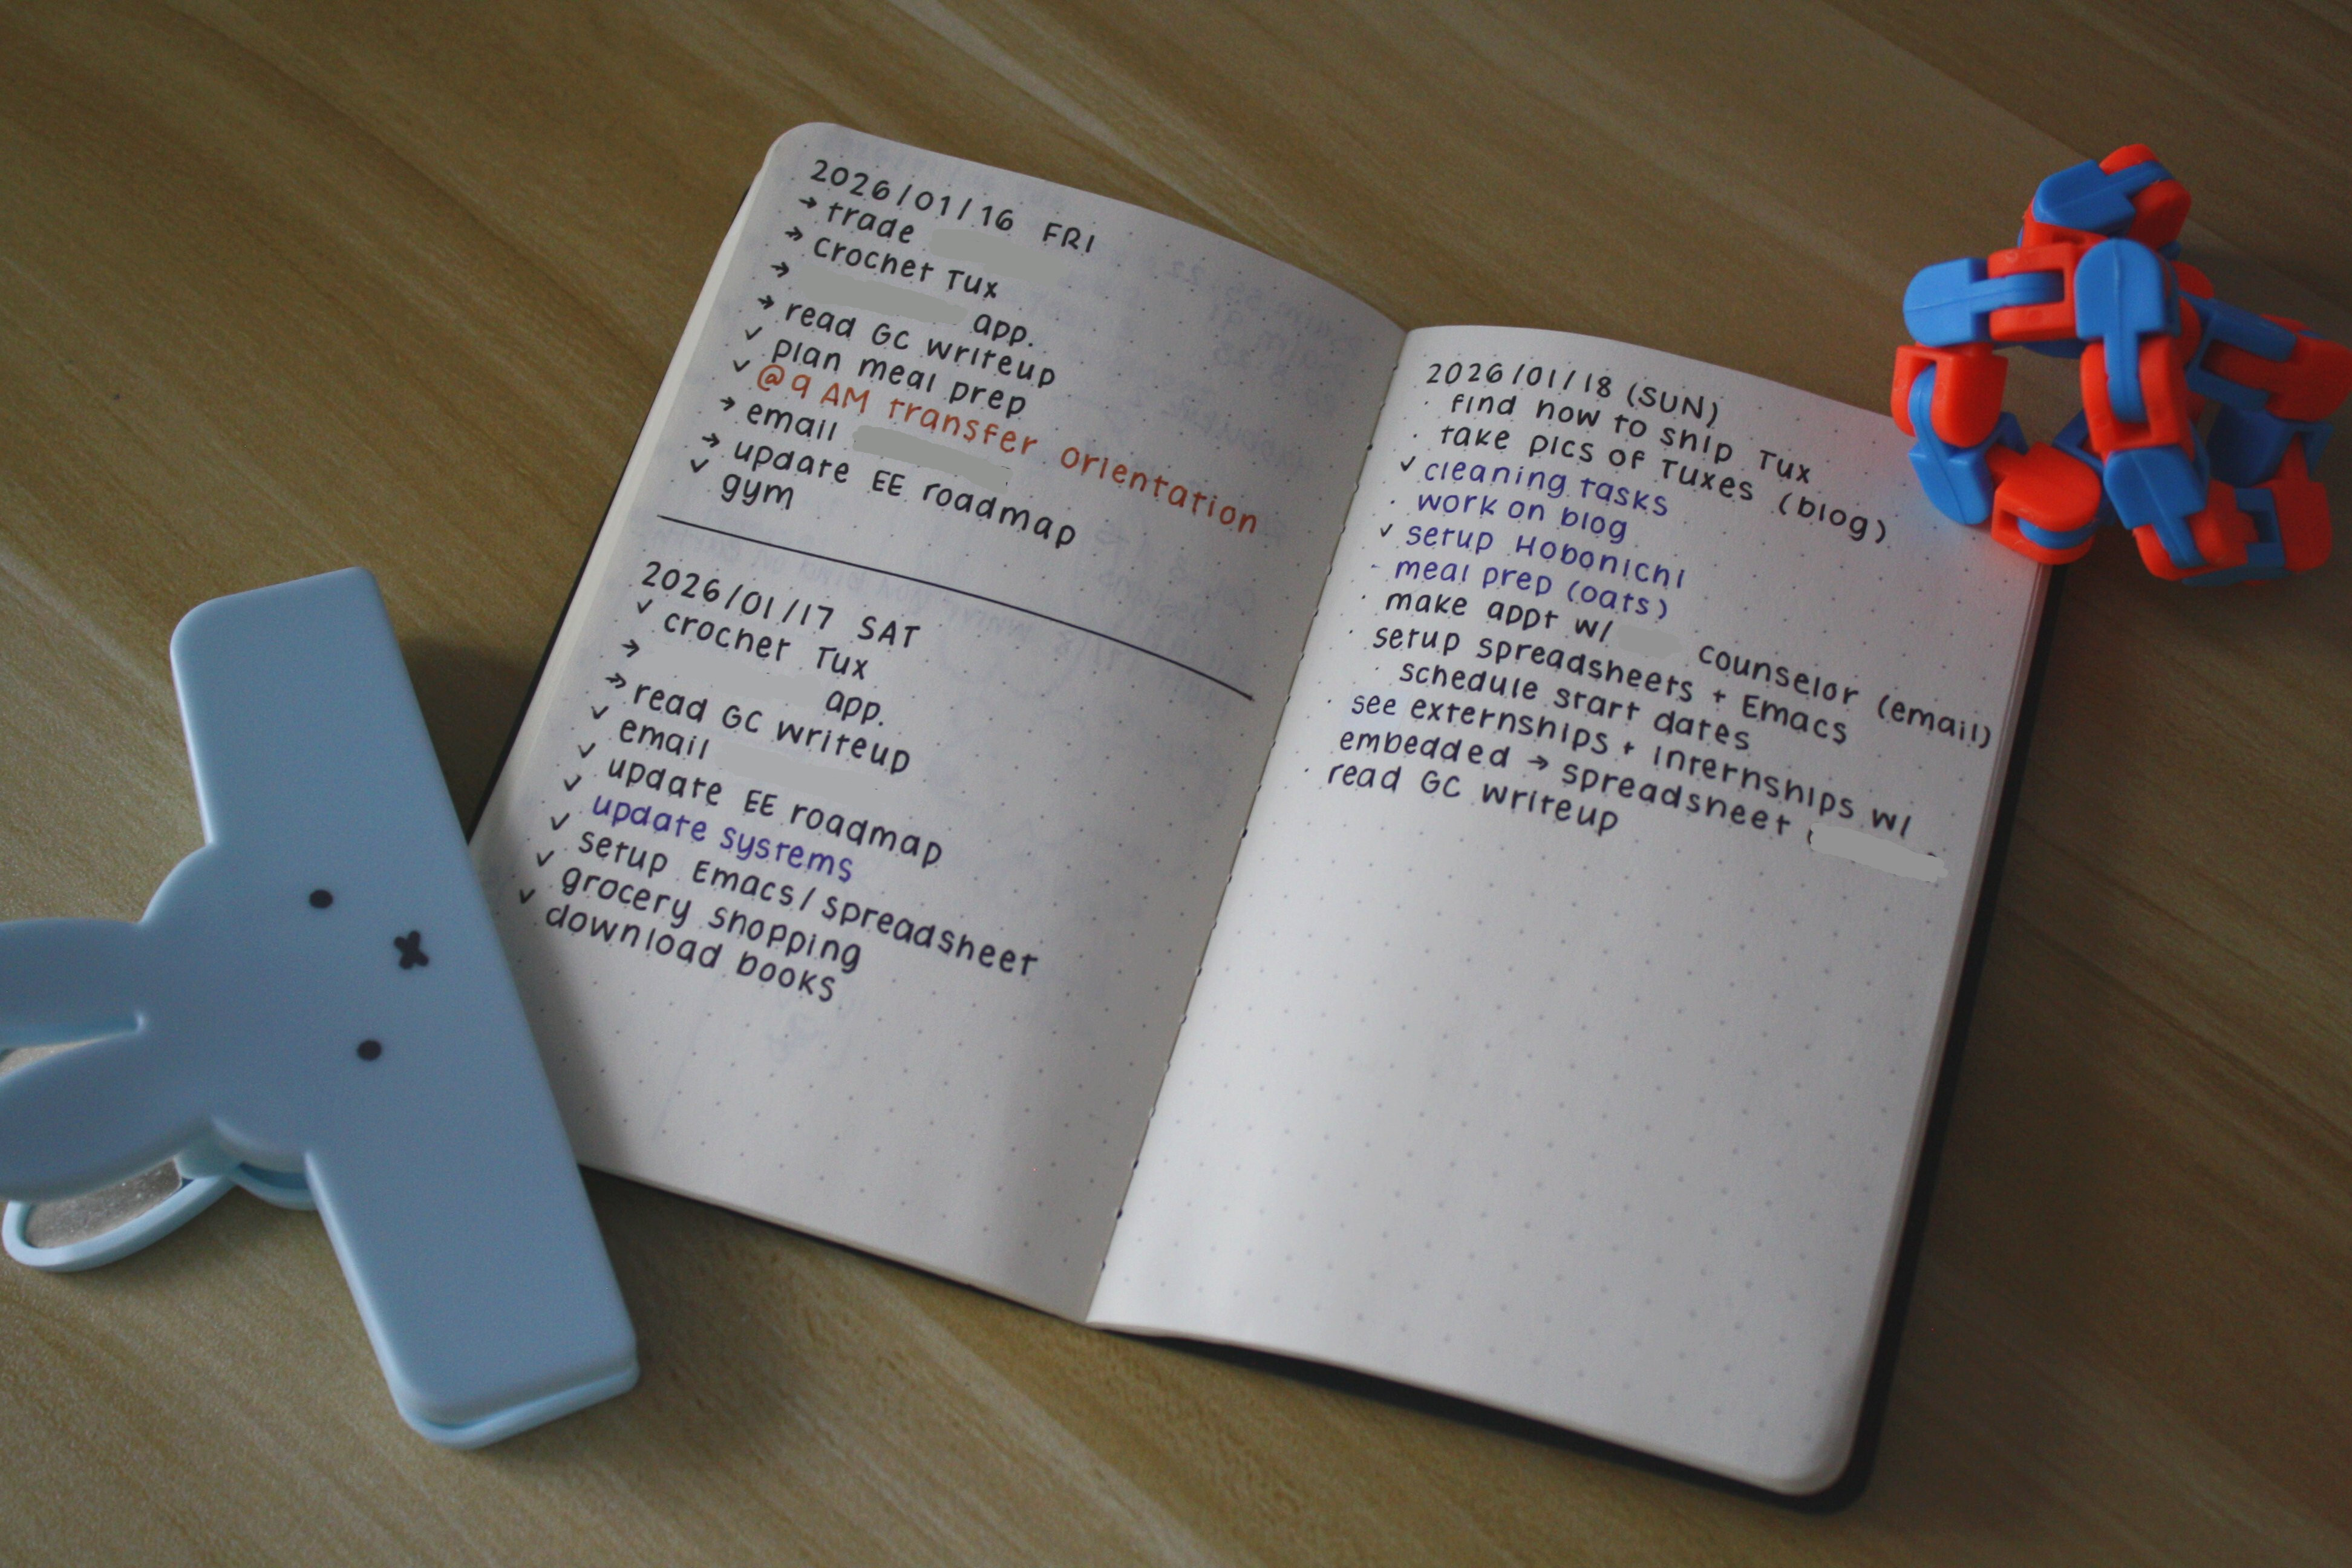 2026/01/16 FRI
→ trade
→ crochet Tux
→ app.
→ read GC writeup
✓ plan meal prep
✓ @9 AM transfer orientation
→ email
→ update EE roadmap
✓ gym
2026/01/17 SAT
✓ crochet Tux
→ app.
→ read GC writeup
✓ email
✓ update EE roadmap
✓ update systems
✓ setup Emacs/spreadsheet
✓ grocery shopping
✓ download books
2026/01/18 (SUN)
· find how to ship Tux
· take pics of Tuxes (blog)
✓ cleaning tasks
· work on blog
✓ setup Hobonichi
- meal prep (oats)
· make appt w/ counselor (email)
· setup spreadsheets + Emacs
· schedule start dates
· see externships + internships w/
embedded → spreadsheet
· read GC writeup